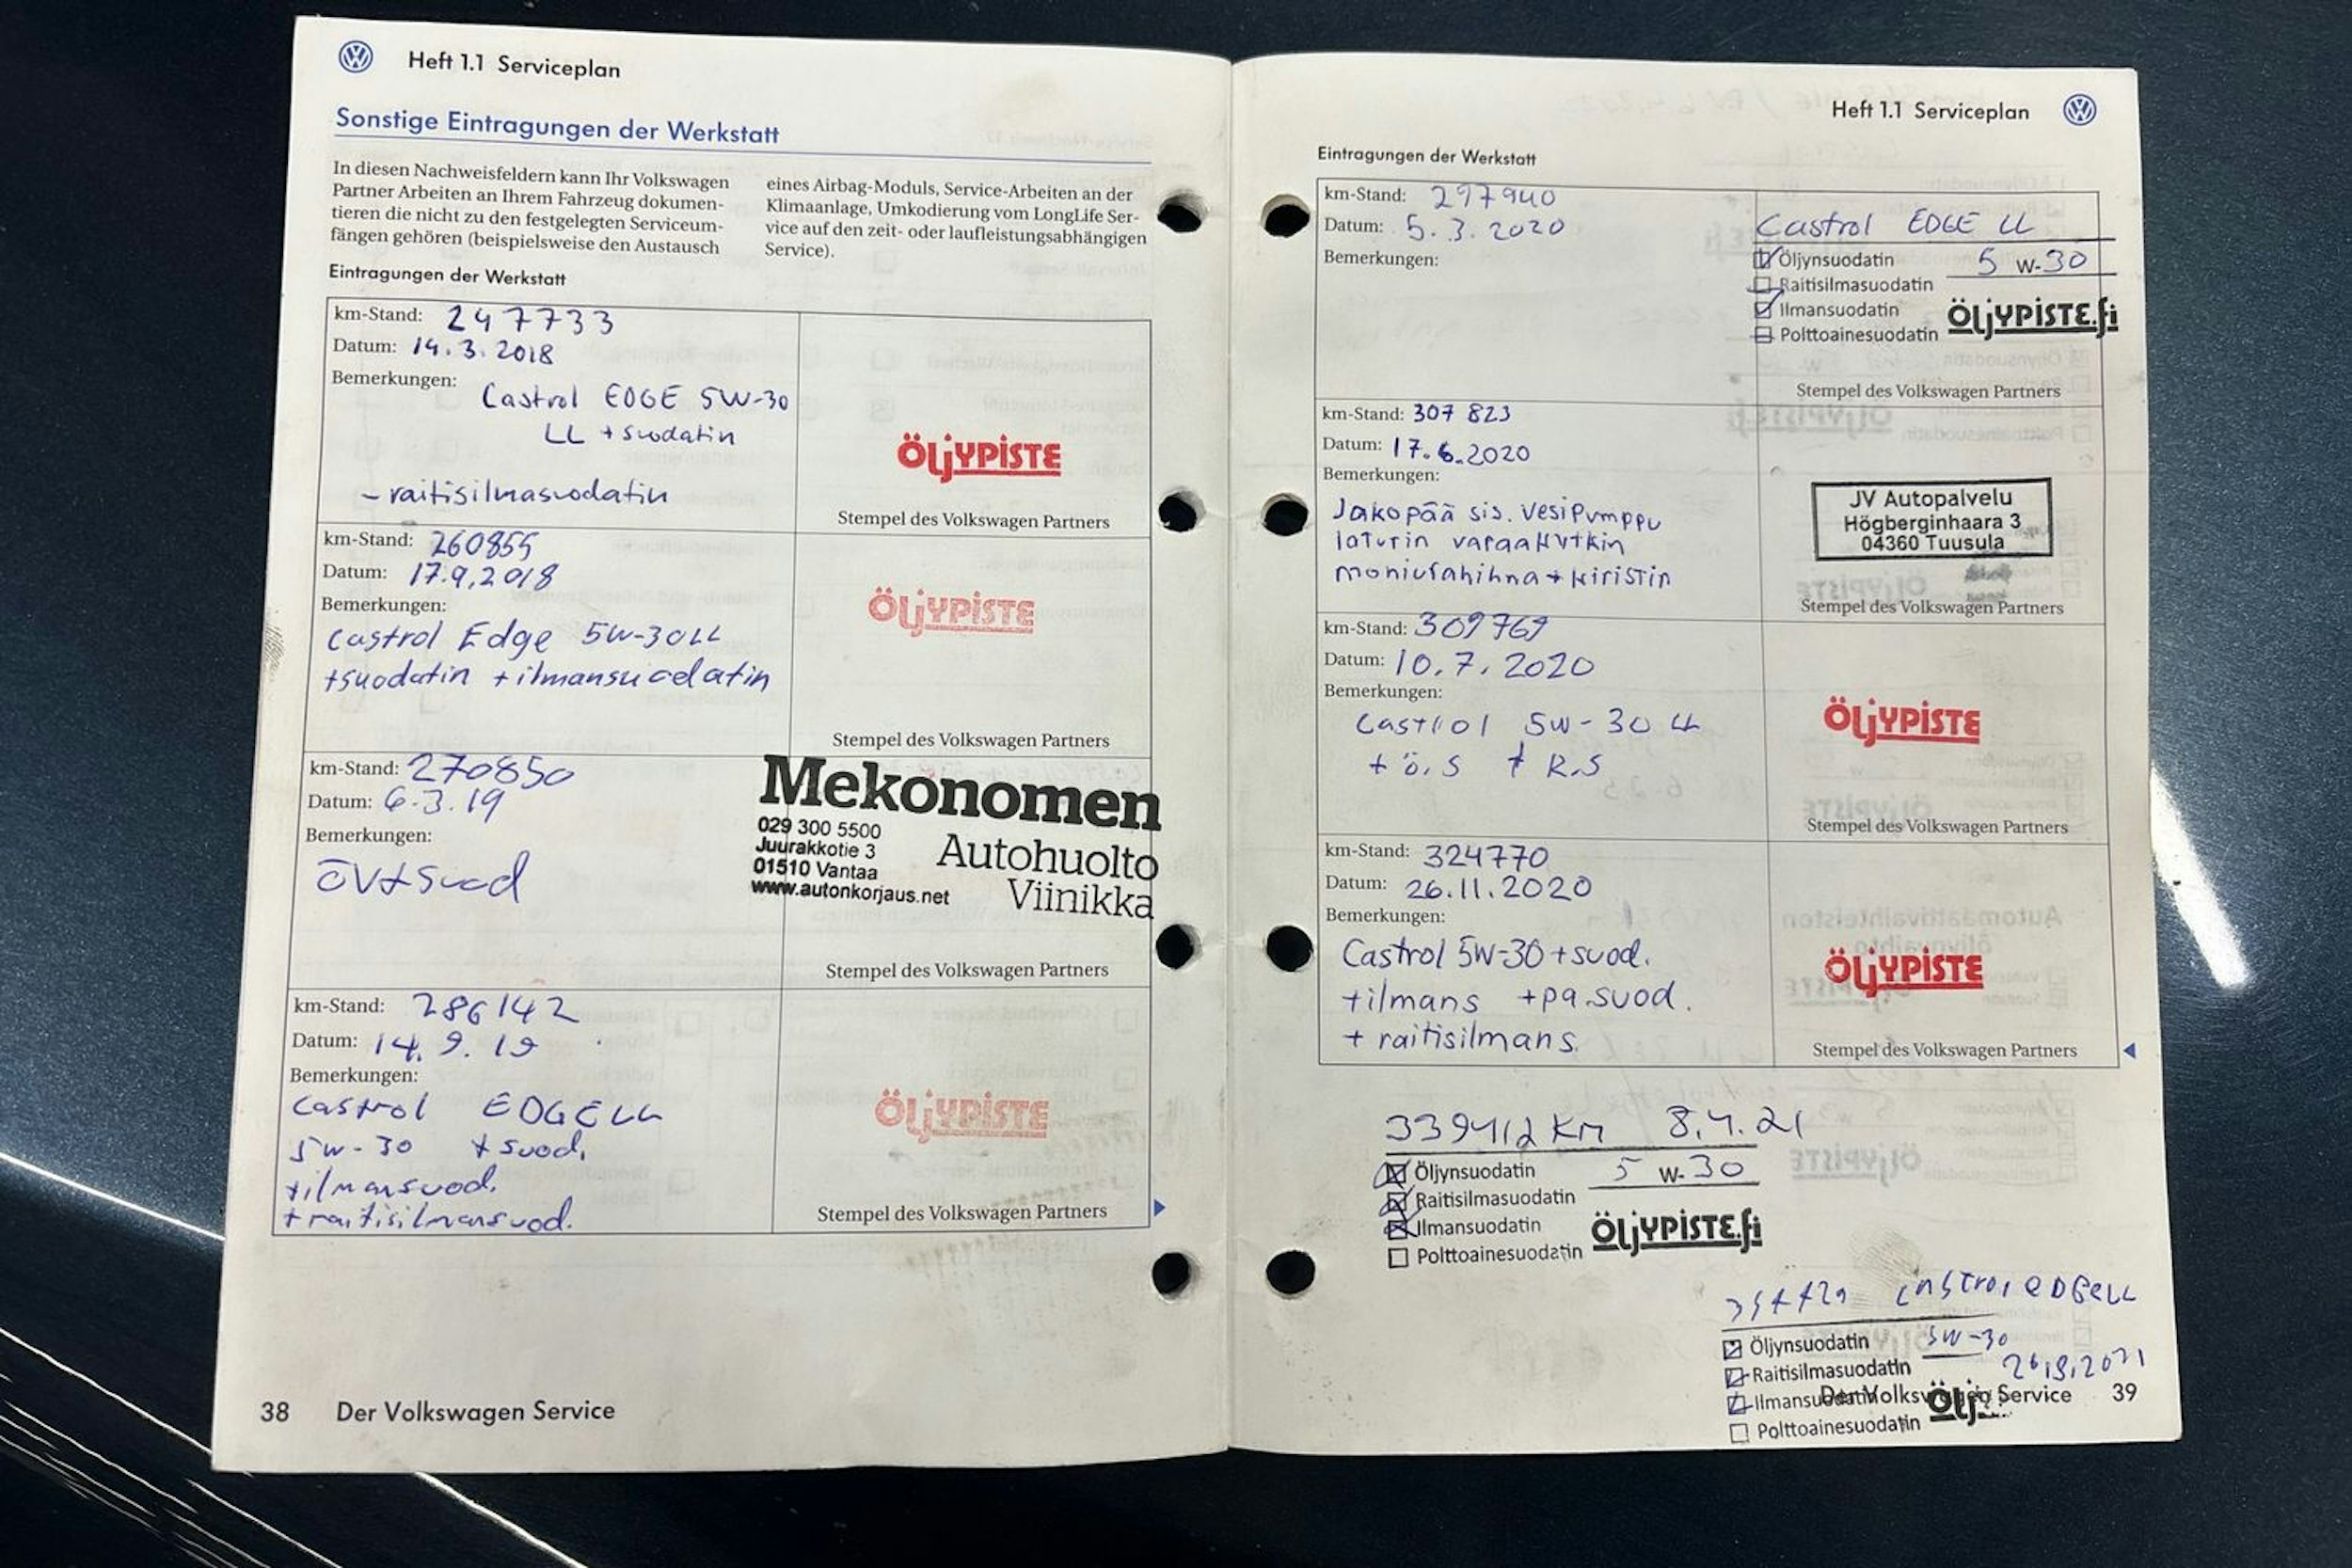 Heft 1.1 Serviceplan
Sonstige Eintragungen der Werkstatt
In diesen Nachweisfeldern kann Ihr Volkswagen
Partner Arbeiten an Ihrem Fahrzeug dokumen-
tieren die nicht zu den festgelegten Serviceum-
fängen gehören (beispielsweise den Austausch
eines Airbag-Moduls, Service-Arbeiten an der
Klimaanlage, Umkodierung vom LongLife Ser-
vice auf den zeit- oder laufleistungsabhängigen
Service).
Eintragungen der Werkstatt
km-Stand: 247733
Datum: 14.3.2018
Bemerkungen:
Castrol EDGE 5W-30
LL + suodatin
- raitisilmasuodatin
ÖLJYPISTE
Stempel des Volkswagen Partners
km-Stand: 260855
Datum: 17.9.2018
Bemerkungen:
Castrol Edge 5W-30LL
+suodatin +ilmansuodatin
ÖLJYPISTE
Stempel des Volkswagen Partners
km-Stand: 270850
Datum: 6.3.19
Bemerkungen:
ÖV+Suod
Mekonomen
029 300 5500
Juurakkotie 3
01510 Vantaa
www.autonkorjaus.net
Autohuolto
Viinikka
Stempel des Volkswagen Partners
km-Stand: 286142
Datum: 14.9.19
Bemerkungen:
Castrol EDGE LL
5W-30 +suod.
+ilmansuod.
+raitisilmansuod.
ÖLJYPISTE
Stempel des Volkswagen Partners
38 Der Volkswagen Service
Heft 1.1 Serviceplan
Eintragungen der Werkstatt
km-Stand: 297940
Datum: 5.3.2020
Bemerkungen:
Castrol EDGE LL
Öljynsuodatin 5 W-30
Raitisilmasuodatin
Ilmansuodatin
Polttoainesuodatin
ÖLJYPISTE.fi
Stempel des Volkswagen Partners
km-Stand: 307 823
Datum: 17.6.2020
Bemerkungen:
Jakopää sis. vesipumppu
laturin vapaakytkin
moniurahihna + kiristin
JV Autopalvelu
Högberginhaara 3
04360 Tuusula
Stempel des Volkswagen Partners
km-Stand: 309769
Datum: 10.7.2020
Bemerkungen:
Castrol 5W-30 LL
+ Ö.S + R.S
ÖLJYPISTE
Stempel des Volkswagen Partners
km-Stand: 324770
Datum: 26.11.2020
Bemerkungen:
Castrol 5W-30 +suod.
+ilmans +pa.suod.
+ raitisilmans.
ÖLJYPISTE
Stempel des Volkswagen Partners
339412 km 8.4.21
Öljynsuodatin 5 W-30
Raitisilmasuodatin
Ilmansuodatin
Polttoainesuodatin
ÖLJYPISTE.fi
Castrol EDGE LL
Öljynsuodatin 5W-30
Raitisilmasuodatin
Ilmansuodatin
Polttoainesuodatin
Der Volkswagen Service 39